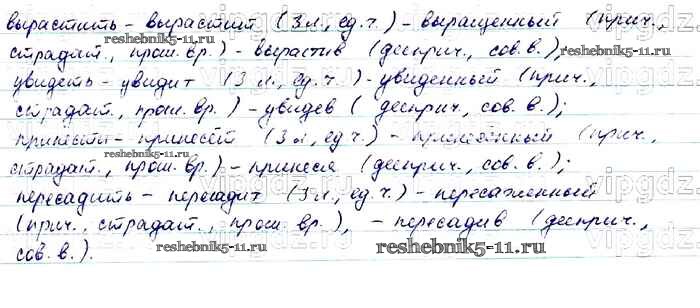 вырастить - вырастит (3 л., ед. ч.) - выращенный (прич.,
страдат., прош. вр.) - вырастив (дееприч., сов. в.);
увидеть - увидит (3 л., ед. ч.) - увиденный (прич.,
страдат., прош. вр.) - увидев (дееприч., сов. в.);
принести - принесёт (3 л., ед. ч.) - принесённый (прич.,
страдат., прош. вр.) - принеся (дееприч., сов. в.);
пересадить - пересадит (3 л., ед. ч.) - пересаженный
(прич., страдат., прош. вр.), - пересадив (дееприч.,
сов. в.).
reshebnik5-11.ru
reshebnik5-11.ru
reshebnik5-11.ru
reshebnik5-11.ru
vipgdz.ru
vipgdz